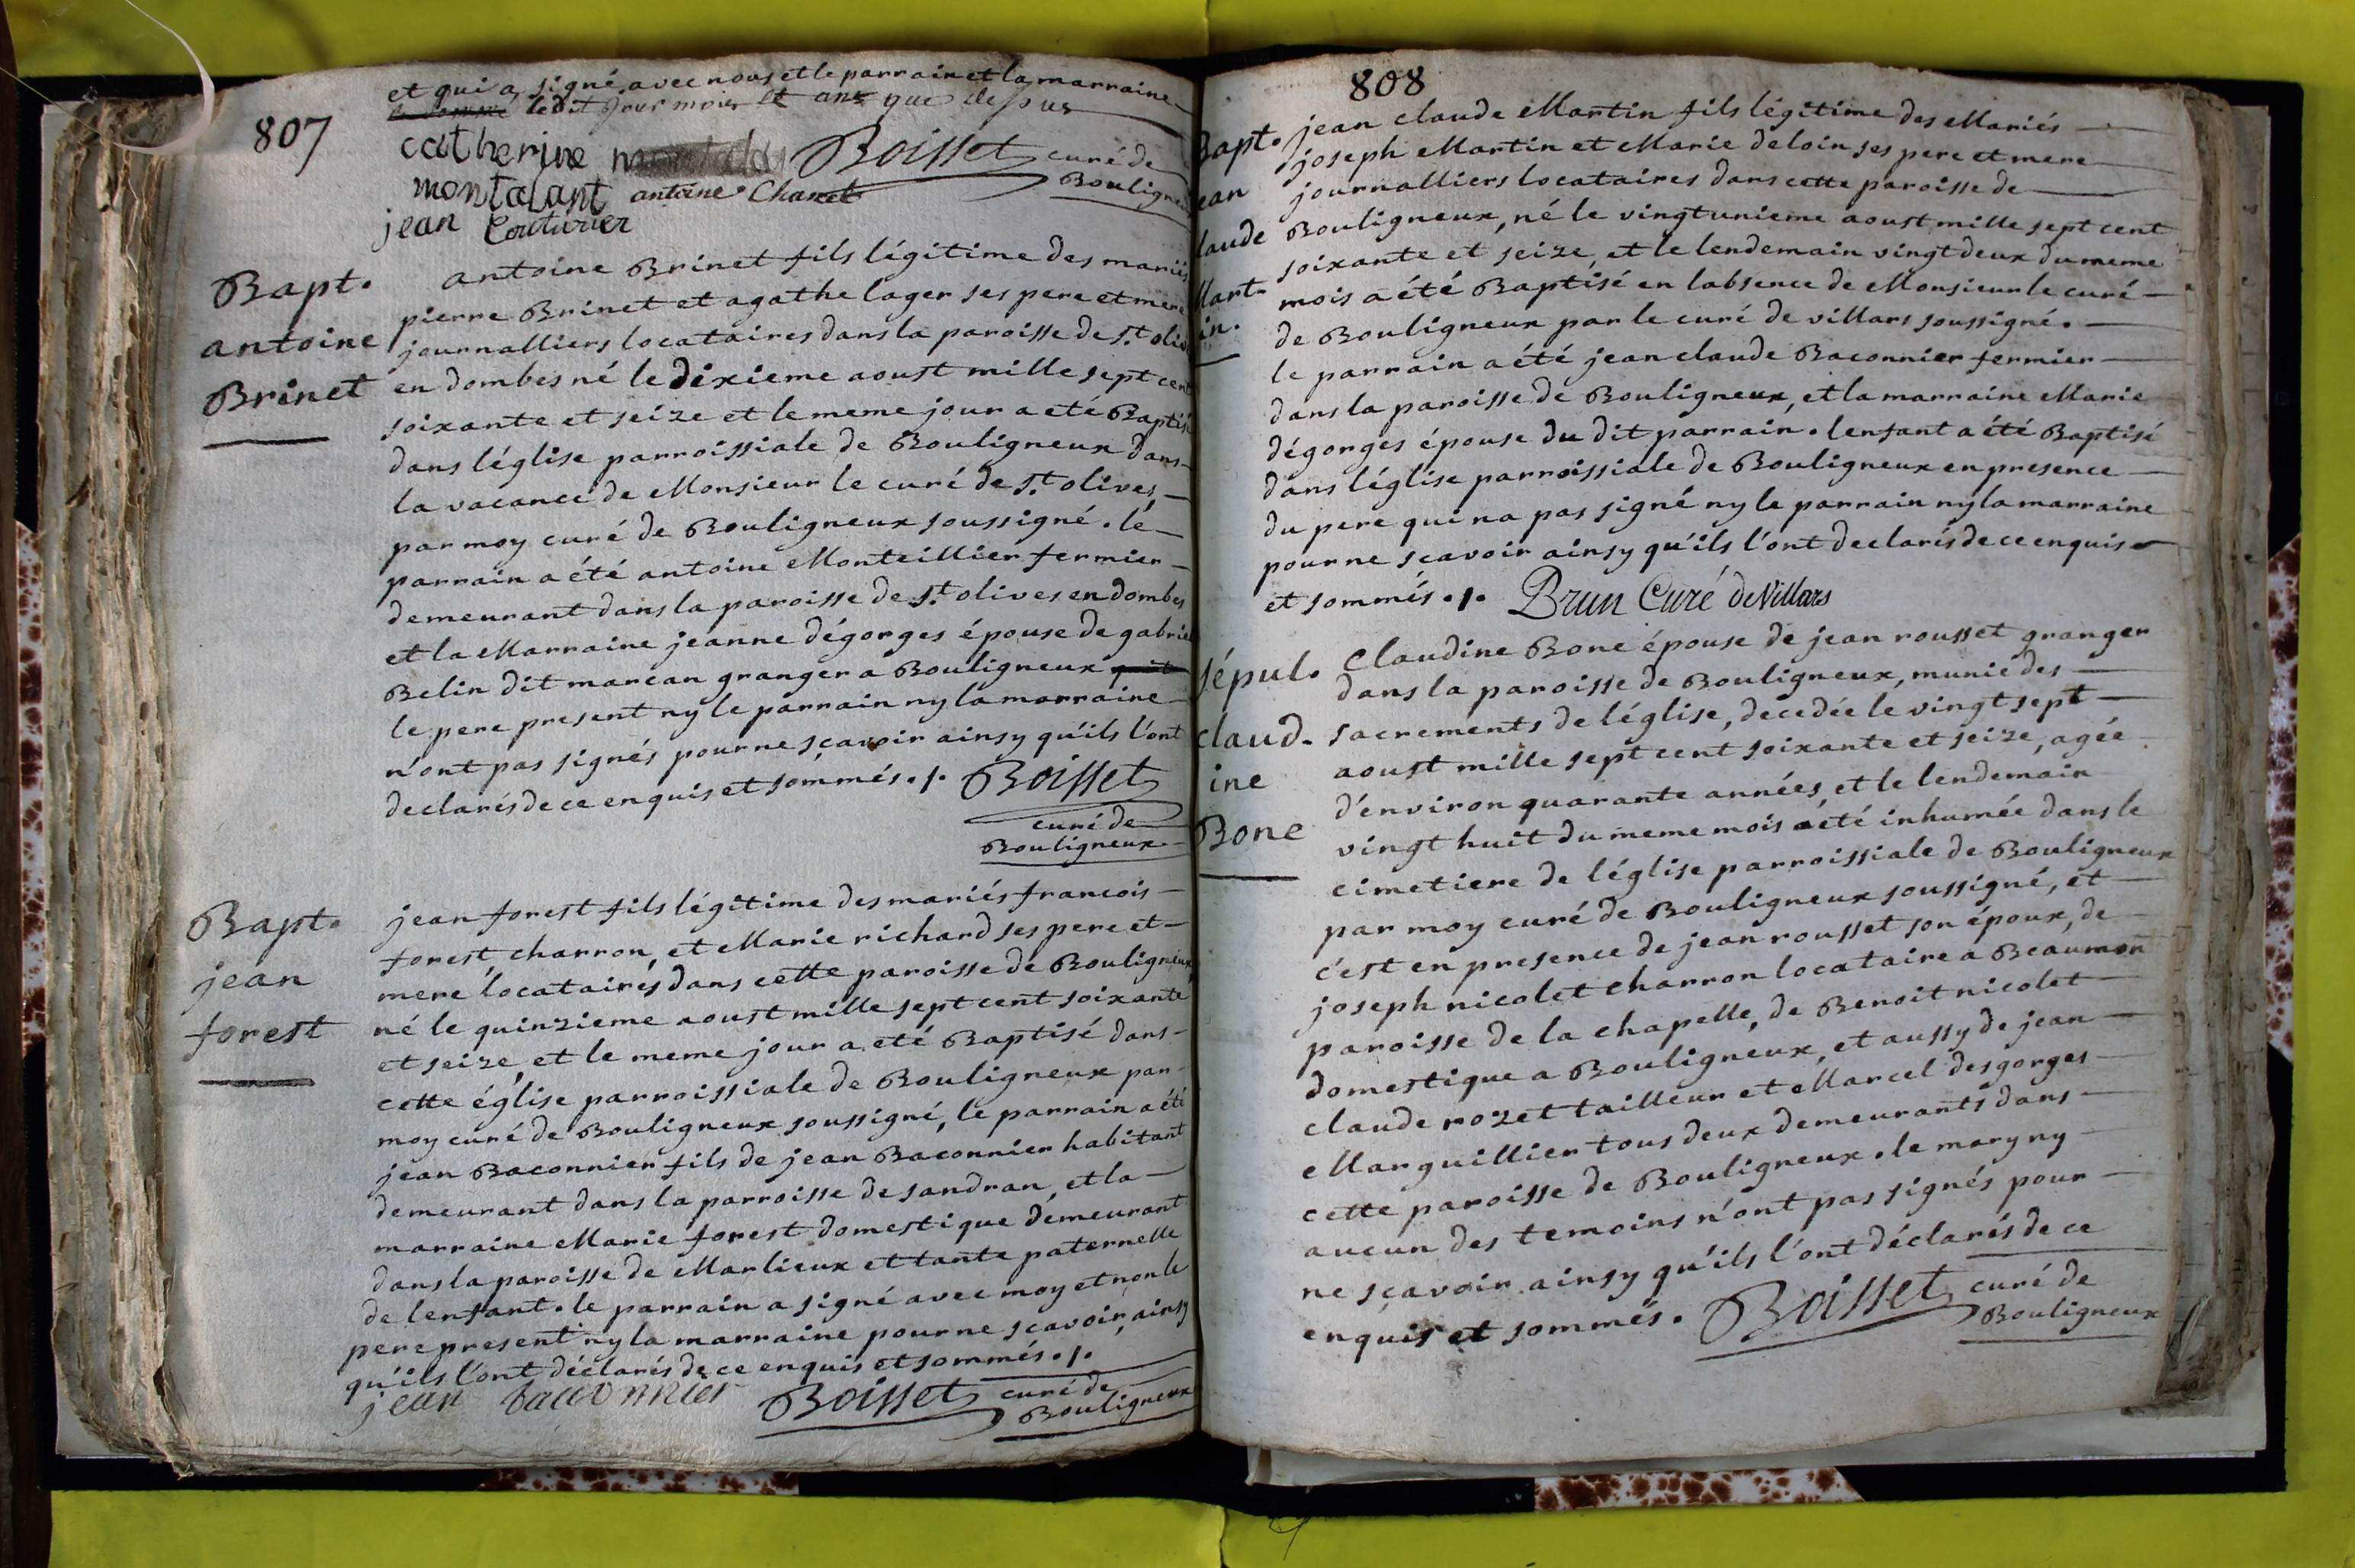 807
et qui a signé avec nous et le parrain et la marraine
ledit jour mois et ans que dessus
catherine
montalant antoine Chanel
jean Couturier
Boisset curé de
Bouligneux
Bapt.
antoine
Brinet
antoine Brinet fils légitime des mariés
pierre Brinet et agathe lager ses pere et mere
journalliers locataires dans la paroisse de st. olive
en dombes né le dixieme aoust mille sept cent
soixante et seize et le meme jour a eté Baptisé
dans léglise parroissiale de Bouligneux dans
la vacance de Monsieur le curé de st. olives,
par moy curé de Bouligneux soussigné. le
parrain a été antoine Monteillier fermier
demeurant dans la paroisse de st. olives en dombes
et la Marraine jeanne dégorges épouse de gabriel
Belin dit marcan granger a Bouligneux
le pere present ny le parrain ny la marraine
n'ont pas signés pour ne sçavoir ainsy qu'ils l'ont
declarés de ce enquis et sommés ./. Boisset
curé de
Bouligneux
Bapt.
jean
forest
jean forest fils légitime des mariés francois
forest, charron, et Marie richard ses pere et
mere locataires dans cette paroisse de Bouligneux,
né le quinzieme aoust mille sept cent soixante
et seize, et le meme jour a eté Baptisé dans
cette église parroissiale de Bouligneux par
moy curé de Bouligneux soussigné, le parrain a été
jean Baconnier fils de jean Baconnier habitant
demeurant dans la parroisse de sandran, et la
marraine Marie forest domestique demeurant
dans la paroisse de Marlieux et tante paternelle
de lenfant. le parrain a signé avec moy et non le
pere present ny la marraine pour ne scavoir, ainsy
qu'ils l'ont déclarés de ce enquis et sommés ./.
jean baconnier Boisset curé de
Bouligneux
808
Bapt.
jean
claude
Mart
in.
jean claude Martin fils légitime des Mariés
joseph Martin et Marie deloin ses pere et mere
journalliers locataires dans cette paroisse de
Bouligneux, né le vingtunieme aoust mille sept cent
soixante et seize, et le lendemain vingt deux du meme
mois a été Baptisé en labsence de Monsieur le curé
de Bouligneux par le curé de villars soussigné.
le parrain a été jean claude Baconnier fermier
dans la paroisse de Bouligneux, et la marraine Marie
dégorges épouse du dit parrain. lenfant a été Baptisé
dans léglise parroissiale de Bouligneux en presence
du pere qui na pas signé ny le parrain ny la marraine
pour ne scavoir ainsy qu'ils l'ont declarés de ce enquis
et sommés ./. Brun Curé de Villars
sépul.
claud-
ine
Bone
Claudine Bone épouse de jean rousset granger
dans la paroisse de Bouligneux, munie des
sacrements de léglise, decedée le vingt sept
aoust mille sept cent soixante et seize, agée
d'environ quarante années, et le lendemain
vingt huit du meme mois a été inhumée dans le
cimetiere de léglise parroissiale de Bouligneux
par moy curé de Bouligneux soussigné, et
c'est en presence de jean rousset son époux, de
joseph nicolet charron locataire a Beaumon
paroisse de la chapelle, de Benoit nicolet
domestique a Bouligneux, et aussy de jean
claude rozet tailleur et Marcel desgorges
Marguillier tous deux demeurants dans
cette paroisse de Bouligneux. le mary ny
aucun des temoins n'ont pas signés pour
ne sçavoir ainsy qu'ils l'ont déclarés de ce
enquis et sommés. Boisset curé de
Bouligneux